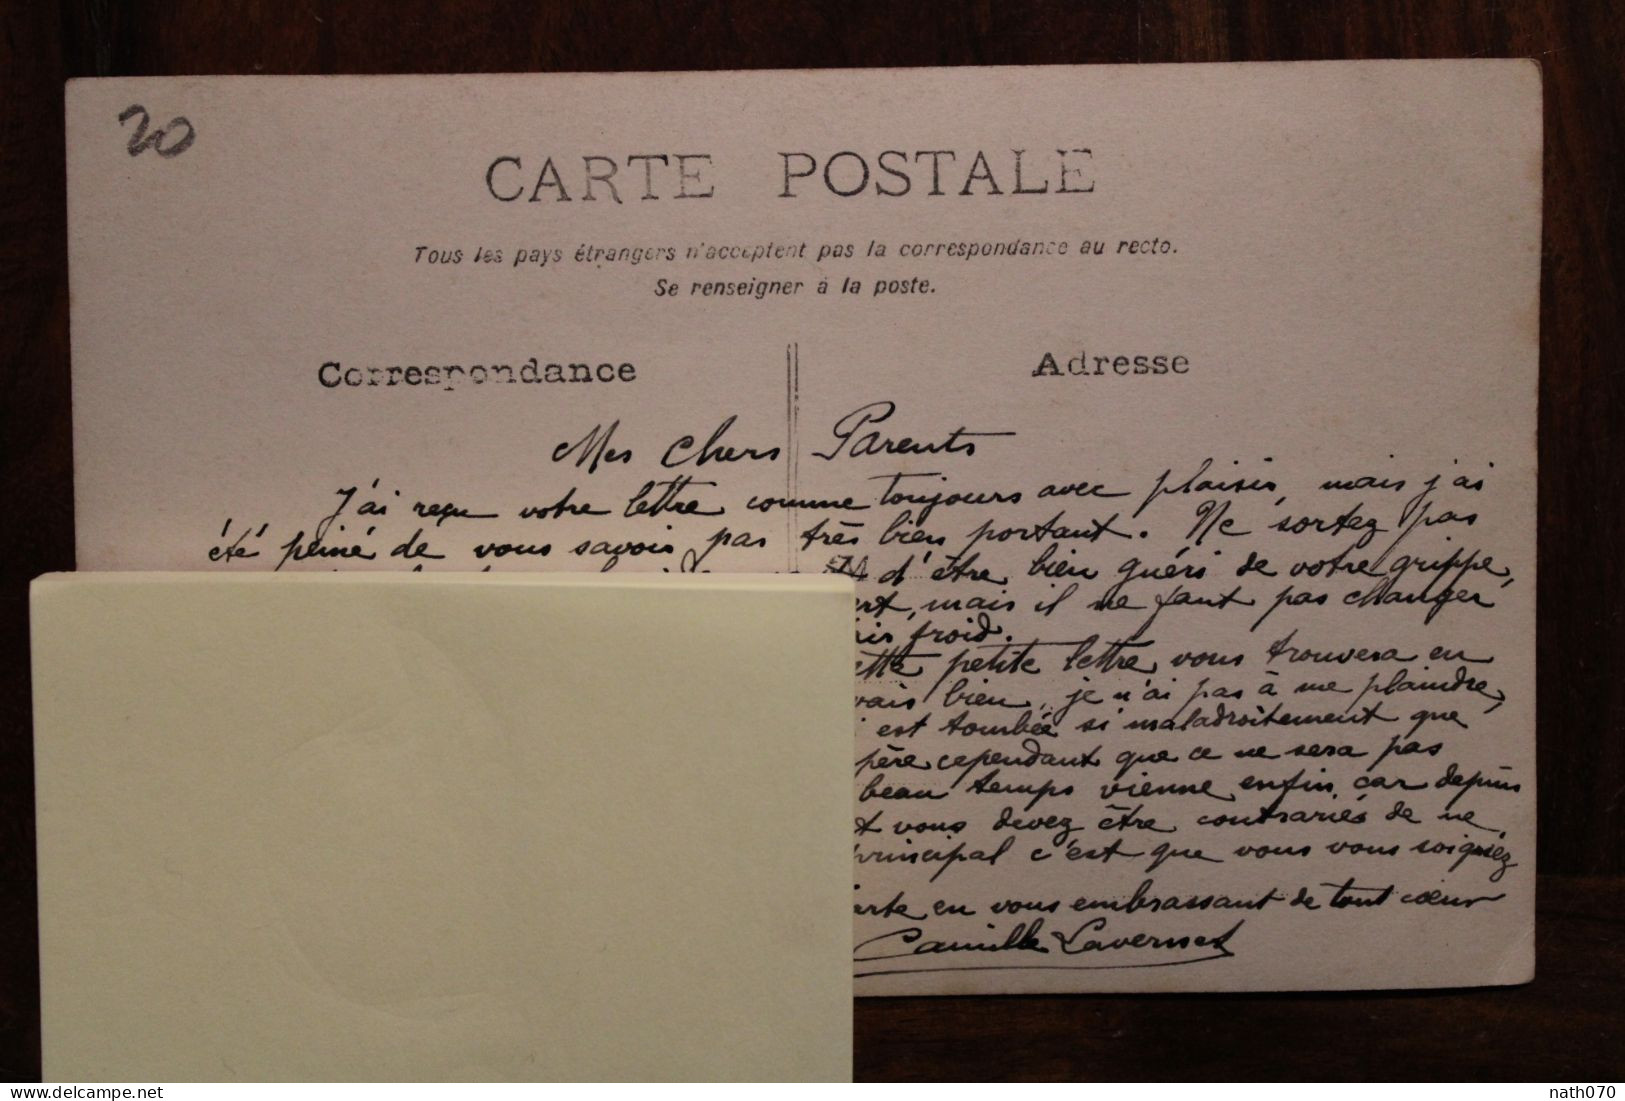 20
CARTE POSTALE
Tous les pays étrangers n'acceptent pas la correspondance au recto.
Se renseigner à la poste.
Correspondance
Adresse
Mes Chers Parents
J'ai reçu votre lettre comme toujours avec plaisir, mais j'ai
été peiné de vous savoir pas très bien portant. Ne sortez pas
d'être bien guéri de votre grippe,
mais il ne faut pas changer
froid.
petite lettre vous trouvera en
vais bien, je n'ai pas à me plaindre,
est tombée si maladroitement que
père cependant que ce ne sera pas
beau temps vienne enfin car depuis
vous devez être contrariés de ne
principal c'est que vous vous soigniez
en vous embrassant de tout cœur
Camille Lavernet
delcampe.net
nath070